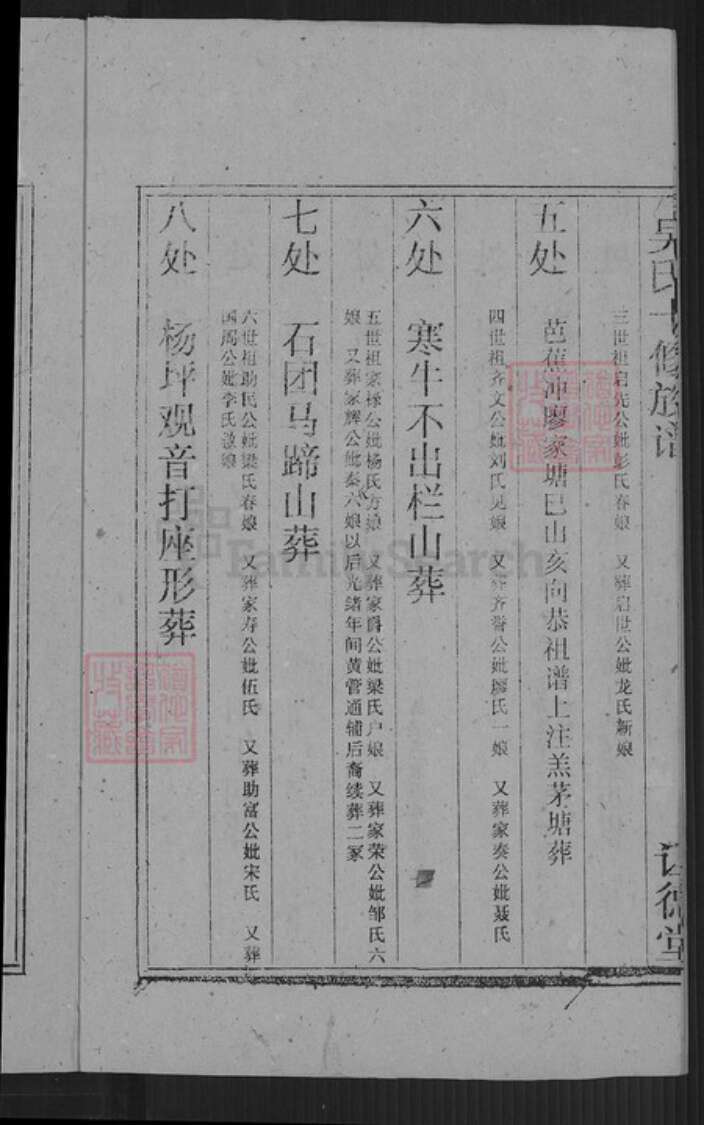 吴氏七修族谱
德堂
三世祖启先公妣彭氏春娘 又葬启世公妣龙氏新娘
五处 芭蕉冲廖家塘巳山亥向恭祖谱上注羔茅塘葬
四世祖齐文公妣刘氏见娘 又葬齐誉公妣廖氏一娘 又葬家奏公妣聂氏
六处 寒牛不出栏山葬
五世祖家禄公妣杨氏方娘 又葬家爵公妣梁氏户娘 又葬家荣公妣邹氏六
娘 又葬家辉公妣秦六娘以后光绪年间黄管通辅后裔续葬二冢
七处 石团马蹄山葬
六世祖助民公妣梁氏春娘 又葬家寿公妣伍氏 又葬助富公妣宋氏 又葬
国周公妣李氏激娘
八处 杨坪观音打座形葬
FamilySearch